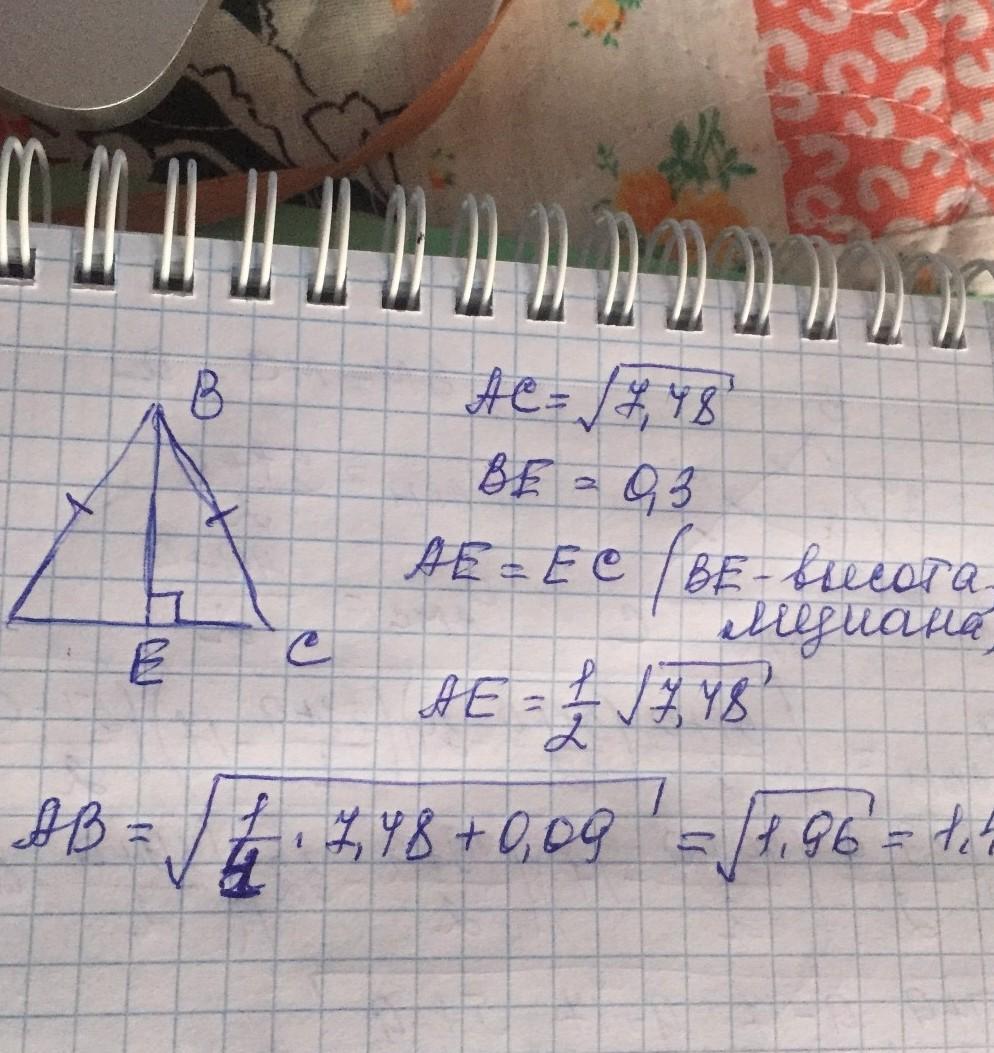 B
E
C
AC = √7,48
BE = 0,3
AE = EC (BE - высота-
медиана)
AE = 1/2 √7,48
AB = √(1/4 · 7,48 + 0,09) = √1,96 = 1,4